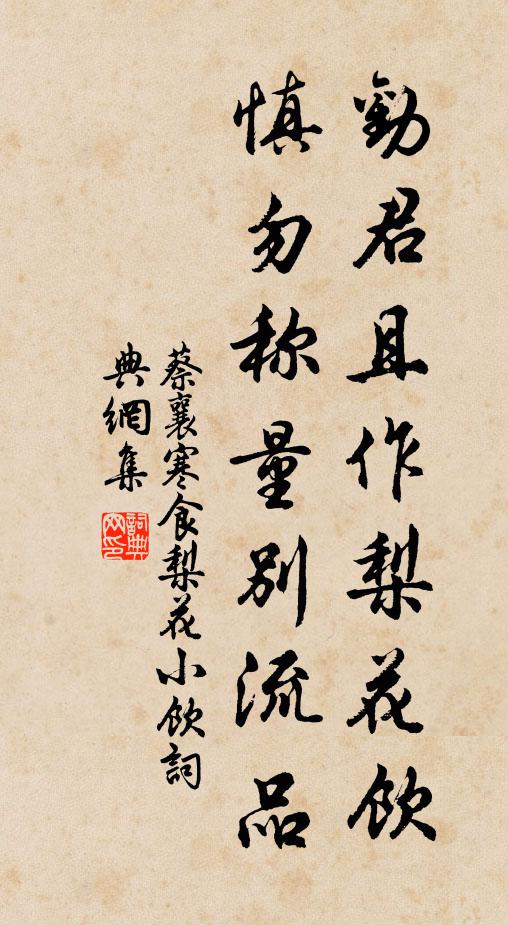 勸君且作梨花飲
慎勿称量別流品
蔡襄寒食梨花小飲詞
典網集
詞典
网印